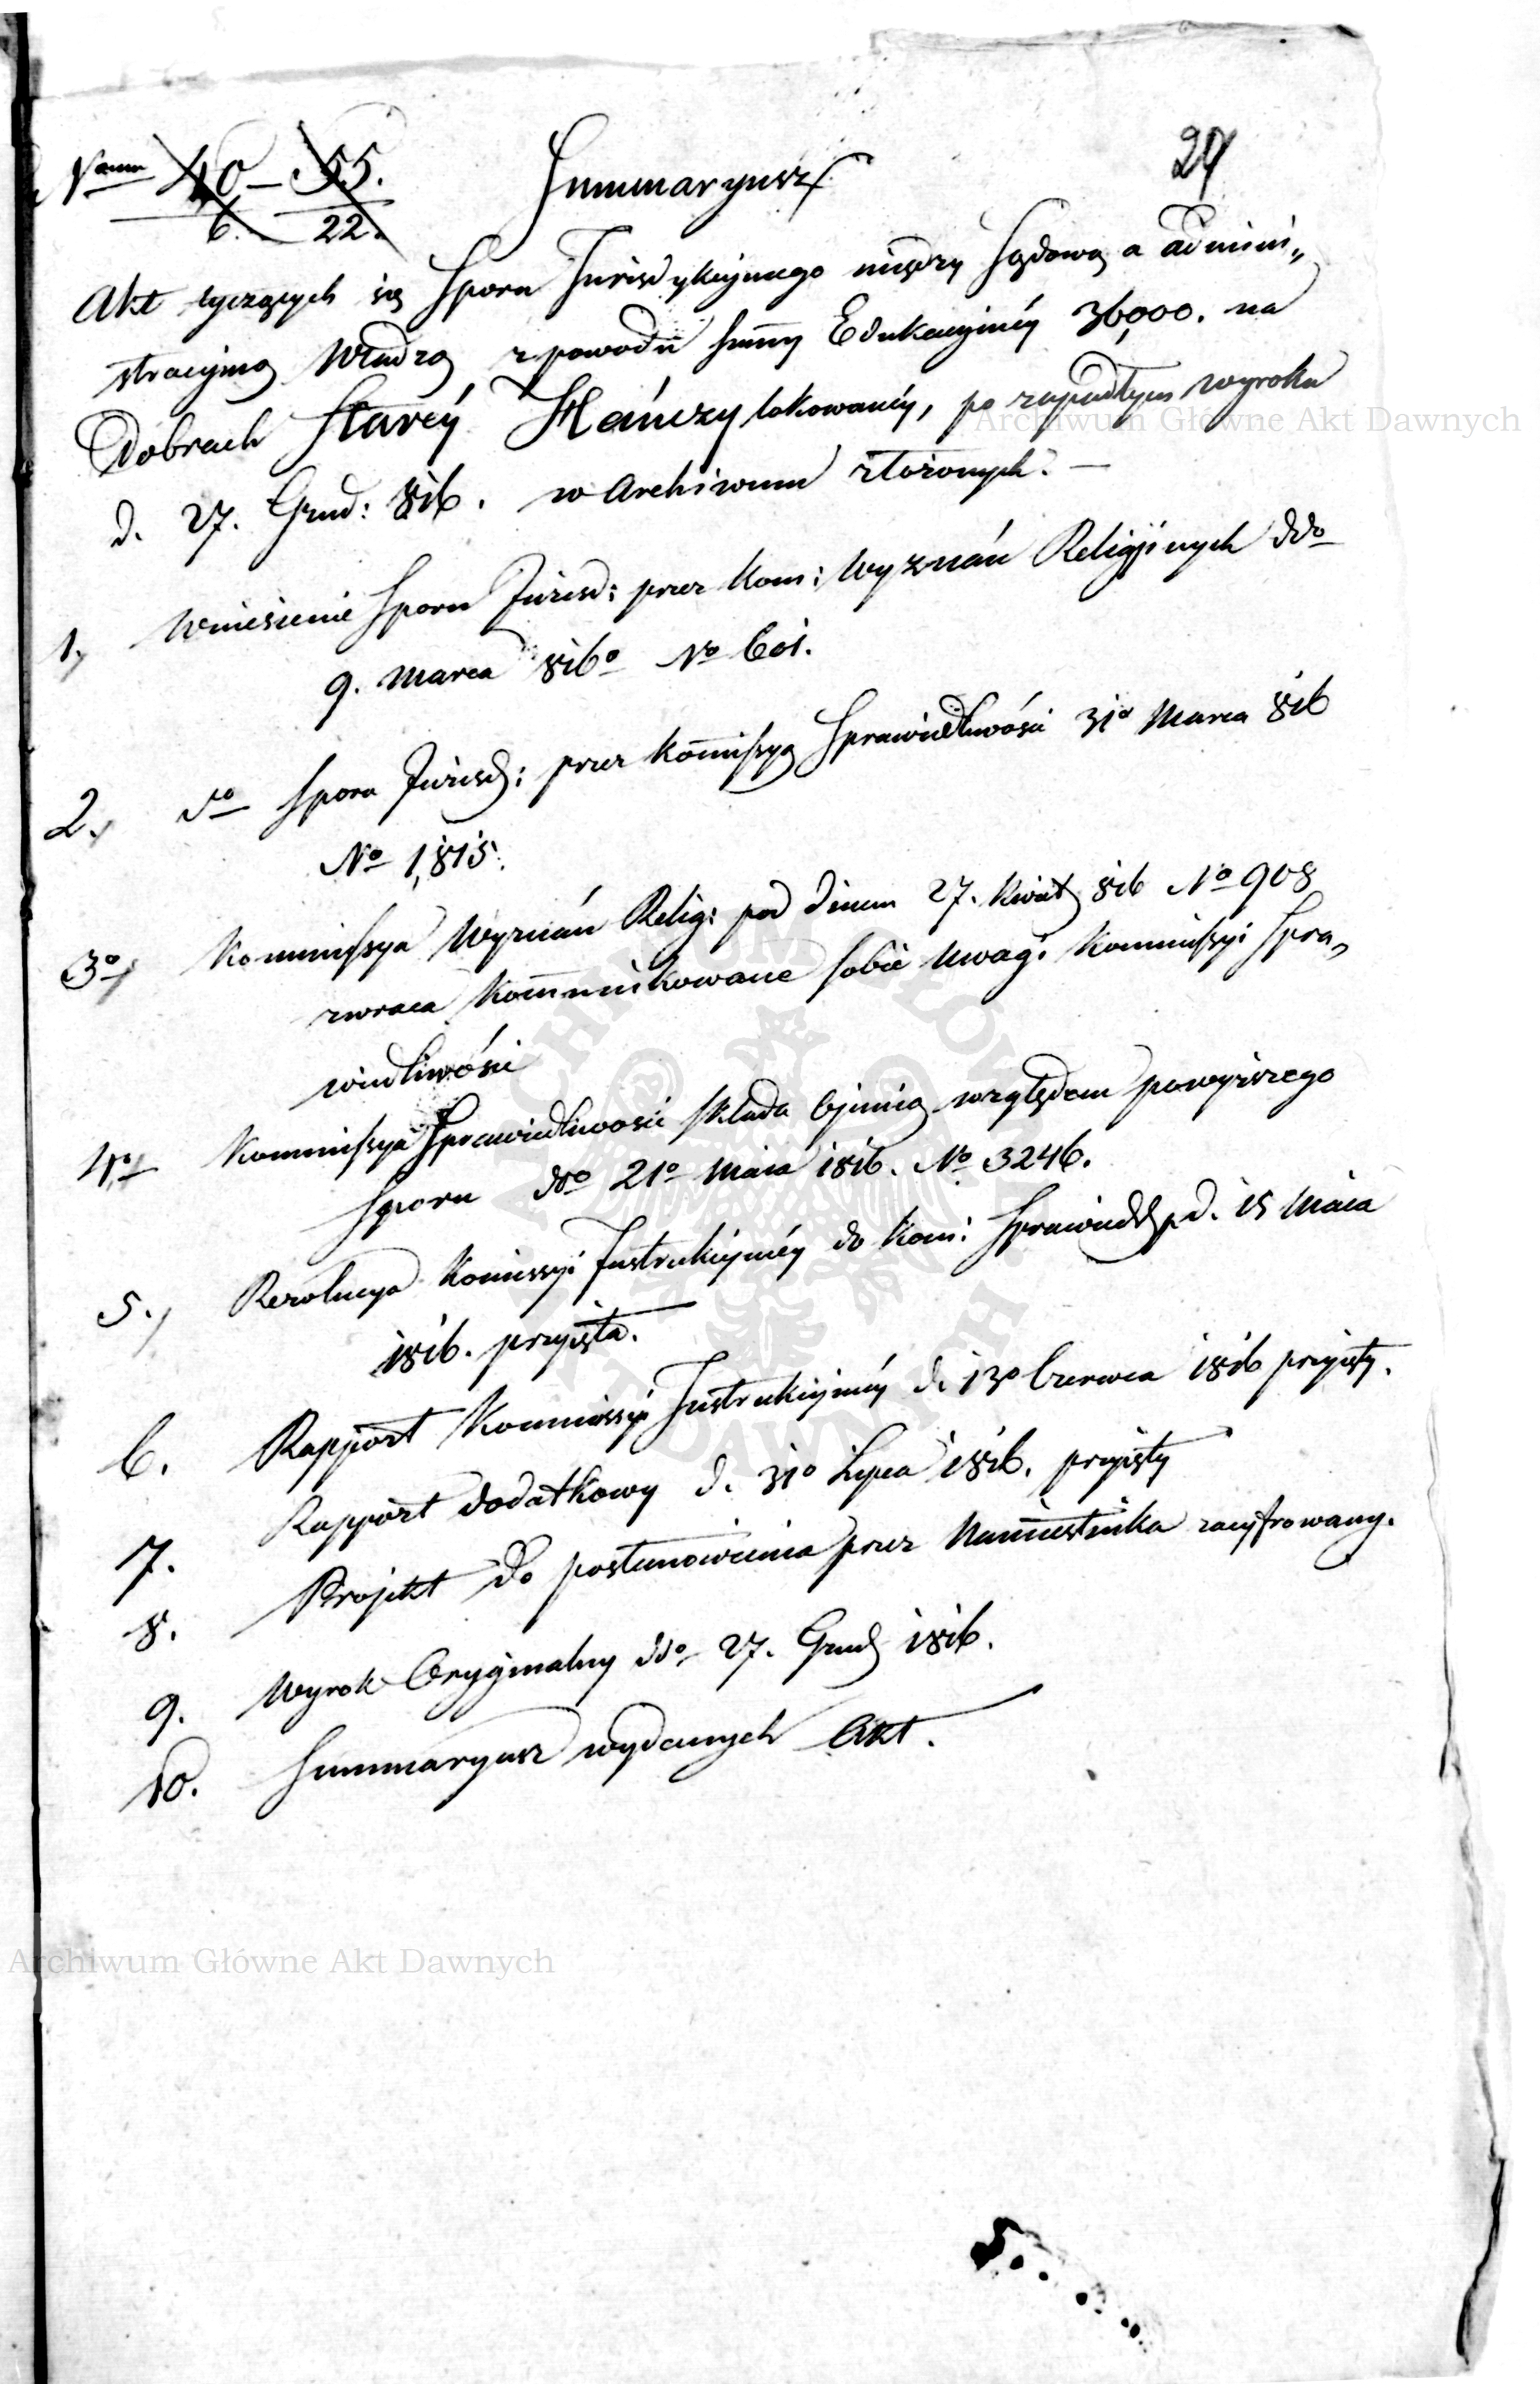 40 – 55.
6. – 22.
Summaryusz
29
Akt tyczących się Sporu Jurisdykcyjnego między Sądową a admini„
stracyjną Władzą z powodu Summy Edukacyjnéy 36,000. na
Dobrach Staréy Hańczy lokowanéy, po zapadłym wyroku
d. 27. Grud: 816. w Archiwum złożonych. –
1, Wniesienie Sporu Jurisd: przez Kom: Wyznán Religijnych ddo
9. Marca 816o No 601.
2., do Sporu Jurisd: przez Kommissyą Sprawiedliwości 31o Marca 816
No 1,815.
3o, Kommissya Wyznán Relig: pod dniem 27. Kwiet. 816 No 908
zwraca kommunikowane sobie Uwagi Kommissyi Spra„
wiedliwości
4o, Kommissya Sprawiedliwości składa Opinią względem powyższego
Sporu ddo 21o Maia 1816. No 3246.
5., Rezolucya Komissyi Instrukcyinéy do Kom: Sprawiedl. d. 15 Maia
1816. przyięta.
6. Rapport Kommissyi Instrukcyinéy d. 13o Czerwca 1816 przyięty.
7. Rapport dodatkowy d. 31o Lipca 1816. przyięty
8. Projekt do postanowienia przez Namiestnika zacyfrowany.
9. Wyrok Oryginalny ddo 27. Grud. 1816.
10. Summaryusz wydanych Akt.
Archiwum Główne Akt Dawnych
Archiwum Główne Akt Dawnych